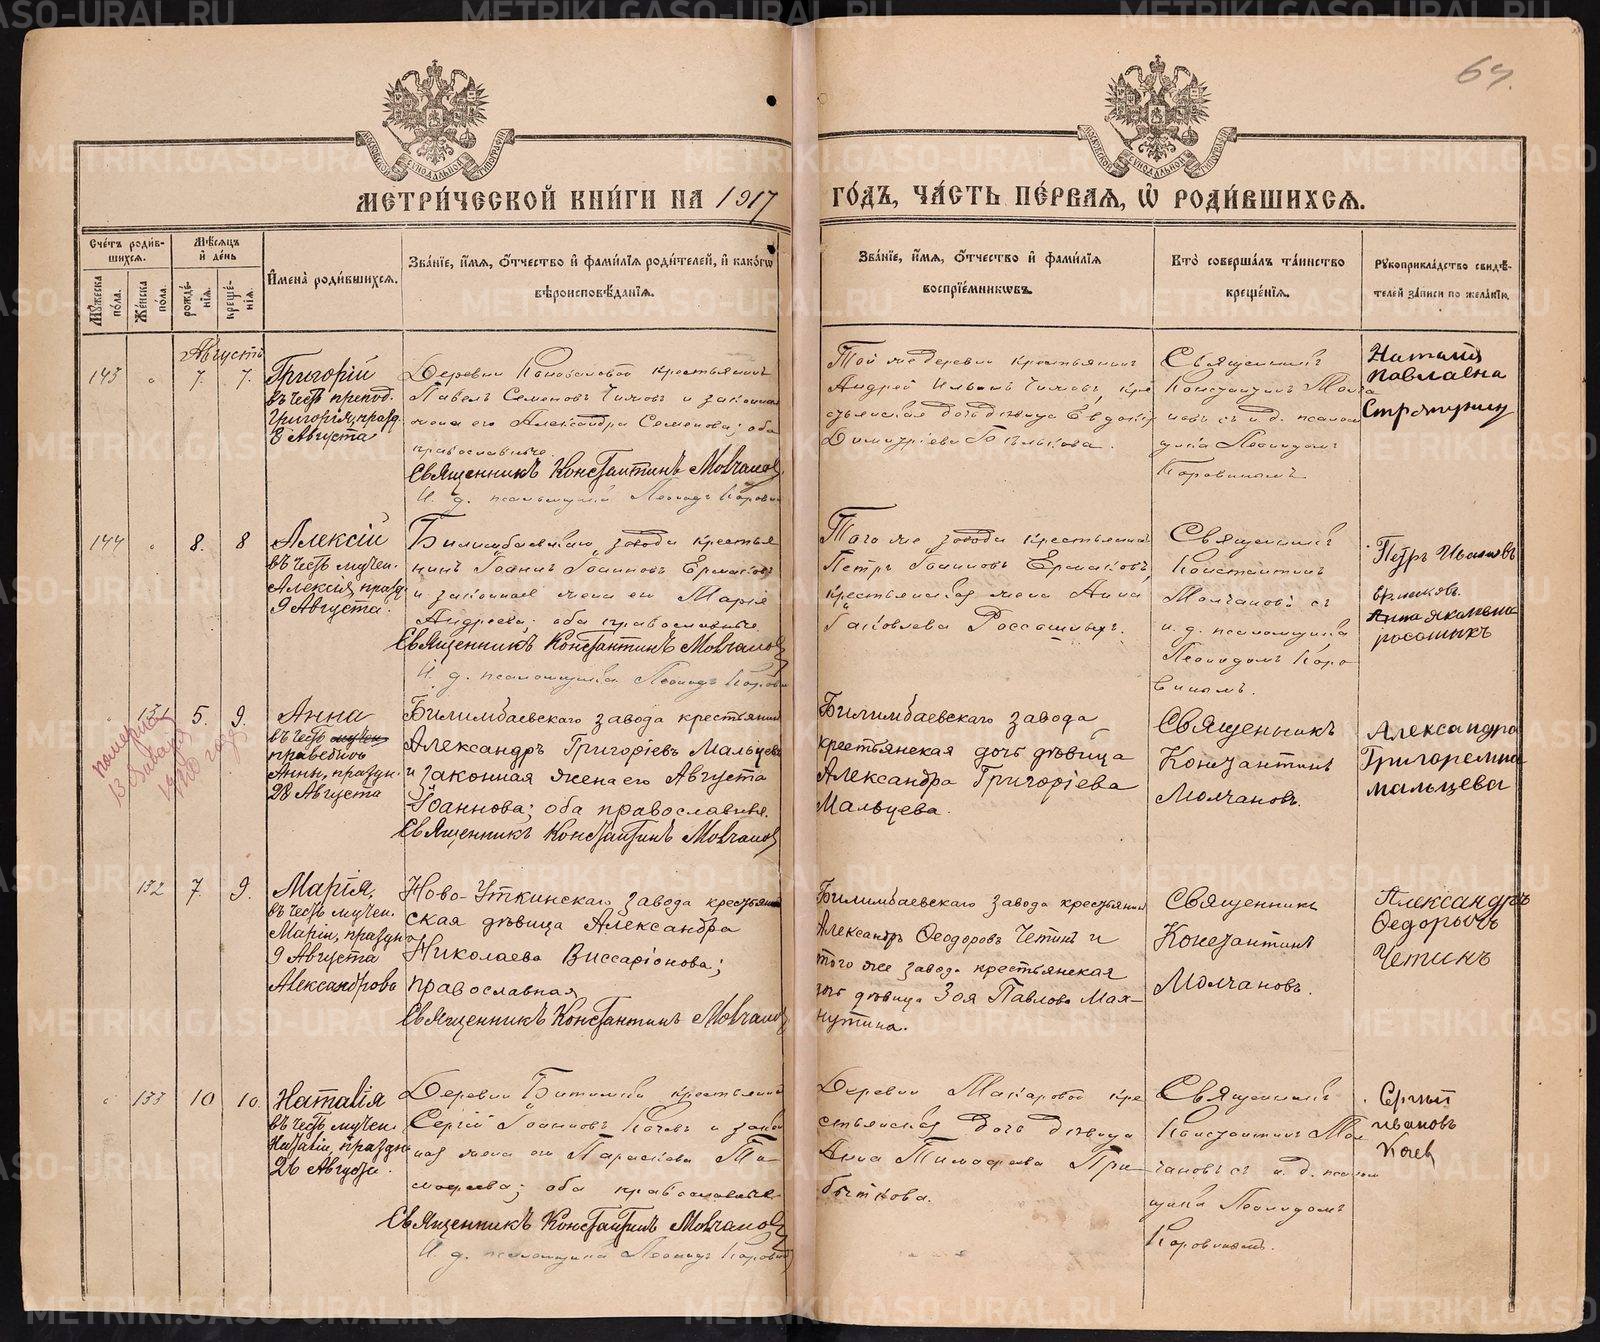 67.
МОСКОВСКОЙ СѴНОДАЛЬНОЙ ТИПОГРАФІИ
МОСКОВСКОЙ СѴНОДАЛЬНОЙ ТИПОГРАФІИ
МЕТРИ́ЧЕСКОЙ КНИ́ГИ НА 1917 ГО́ДЪ, ЧА́СТЬ ПЕ́РВАЯ, Ѡ҆ РОДИ́ВШИХСЯ.
Сче́тъ роди́в-
шихся.
Мꙋ́жеска по́ла.
Же́нска по́ла.
Мѣ́сяцъ и҆ де́нь
рожде́-
нїя.
креще́-
нїя.
И҆мена̀ роди́вшихся.
Зва́нїе, и҆́мя, ѻ҆́тчество и҆ фами́лїя роди́телей, и҆ како́гѡ
вѣроисповѣ́данїя.
Зва́нїе, и҆́мя, ѻ҆́тчество и҆ фами́лїя
воспрїе́мникѡвъ.
Кто̀ соверша́лъ та́инство
креще́нїя.
Рꙋкоприкла́дство свидѣ́-
телей за́писи по жела́нїю.
Августъ
143 7. 7.
Григорій
въ честь препод.
Григорія, празд.
8 Августа
Деревни Коноваловой крестьянинъ
Павелъ Семеновъ и законная
жена его Александра Семенова; оба
православные.
Священникъ Константинъ Молчановъ
И. д. псаломщика Леонидъ Коровинъ
Той же деревни крестьянинъ
Андрей Ильинъ кре
стьянская дочь девица Евдокія
Димитріева
Священникъ
Константинъ Молча
новъ съ и. д. псалом
щика Леонидомъ
Коровинымъ
Наталія
Павлаена
144 8. 8
Алексій
въ честь мучен.
Алексія, празд.
9 Августа.
Билимбаевскаго завода крестья
нинъ Іоаннъ Іоанновъ Ермаковъ
и законная жена его Марія
Андреева; оба православные
Священникъ Константинъ Молчановъ
И. д. псаломщика Леонидъ Коровинъ
Того же завода крестьянинъ
Петръ Іоанновъ Ермаковъ,
крестьянская жена Анна
Іаковлева Россошныхъ.
Священникъ
Константинъ
Молчановъ съ
и. д. псаломщика
Леонидомъ Коро
винымъ.
Петръ Ивановъ
Ермаковъ.
Анна Яковлевна
росошыхъ
131 5. 9.
померла
13 Января
1920 года
Анна
въ честь мучен
праведныя
Анны, празднъ.
28 Августа
Билимбаевскаго завода крестьянинъ
Александръ Григоріевъ Мальцевъ
и законная жена его Августа
Іоаннова; оба православные.
Священникъ Константинъ Молчановъ
Билимбаевскаго завода
крестьянская дочь дѣвица
Александра Григоріева
Мальцева.
Священникъ
Константинъ
Молчановъ.
Александра
Григоревна
мальцева
132 7. 9.
Марія,
въ честь мучен.
Маріи, праздн.
9 Августа
Александрова
Ново-Уткинскаго завода крестьян
ская дѣвица Александра
Николаева Виссаріонова;
православная
Священникъ Константинъ Молчановъ
Билимбаевскаго завода крестьянинъ
Александръ Феодоровъ Четинъ и
того же завода крестьянская
дочь дѣвица Зоя Павлова Мах-
нутина.
Священникъ
Константинъ
Молчановъ.
Александръ
Федорычъ
Четинъ
133 10 10.
Наталія
въ честь мучен.
Наталіи, праздн
26 Августа.
Деревни Битимки крестьянинъ
Сергій Іоанновъ Кочевъ и закон
ная жена его Параскева Ти
мофеева; оба православные
Священникъ Константинъ Молчановъ
И. д. псаломщика Леонидъ Коровинъ
Деревни Макаровой кре
стьянская дочь девица
Анна Тимофеева При
быткова.
Священникъ
Константинъ Мол
чановъ съ и. д. псалом
щика Леонидомъ
Коровинымъ.
Сергъй
ивановъ
Кочев
METRIKI.GASO-URAL.RU